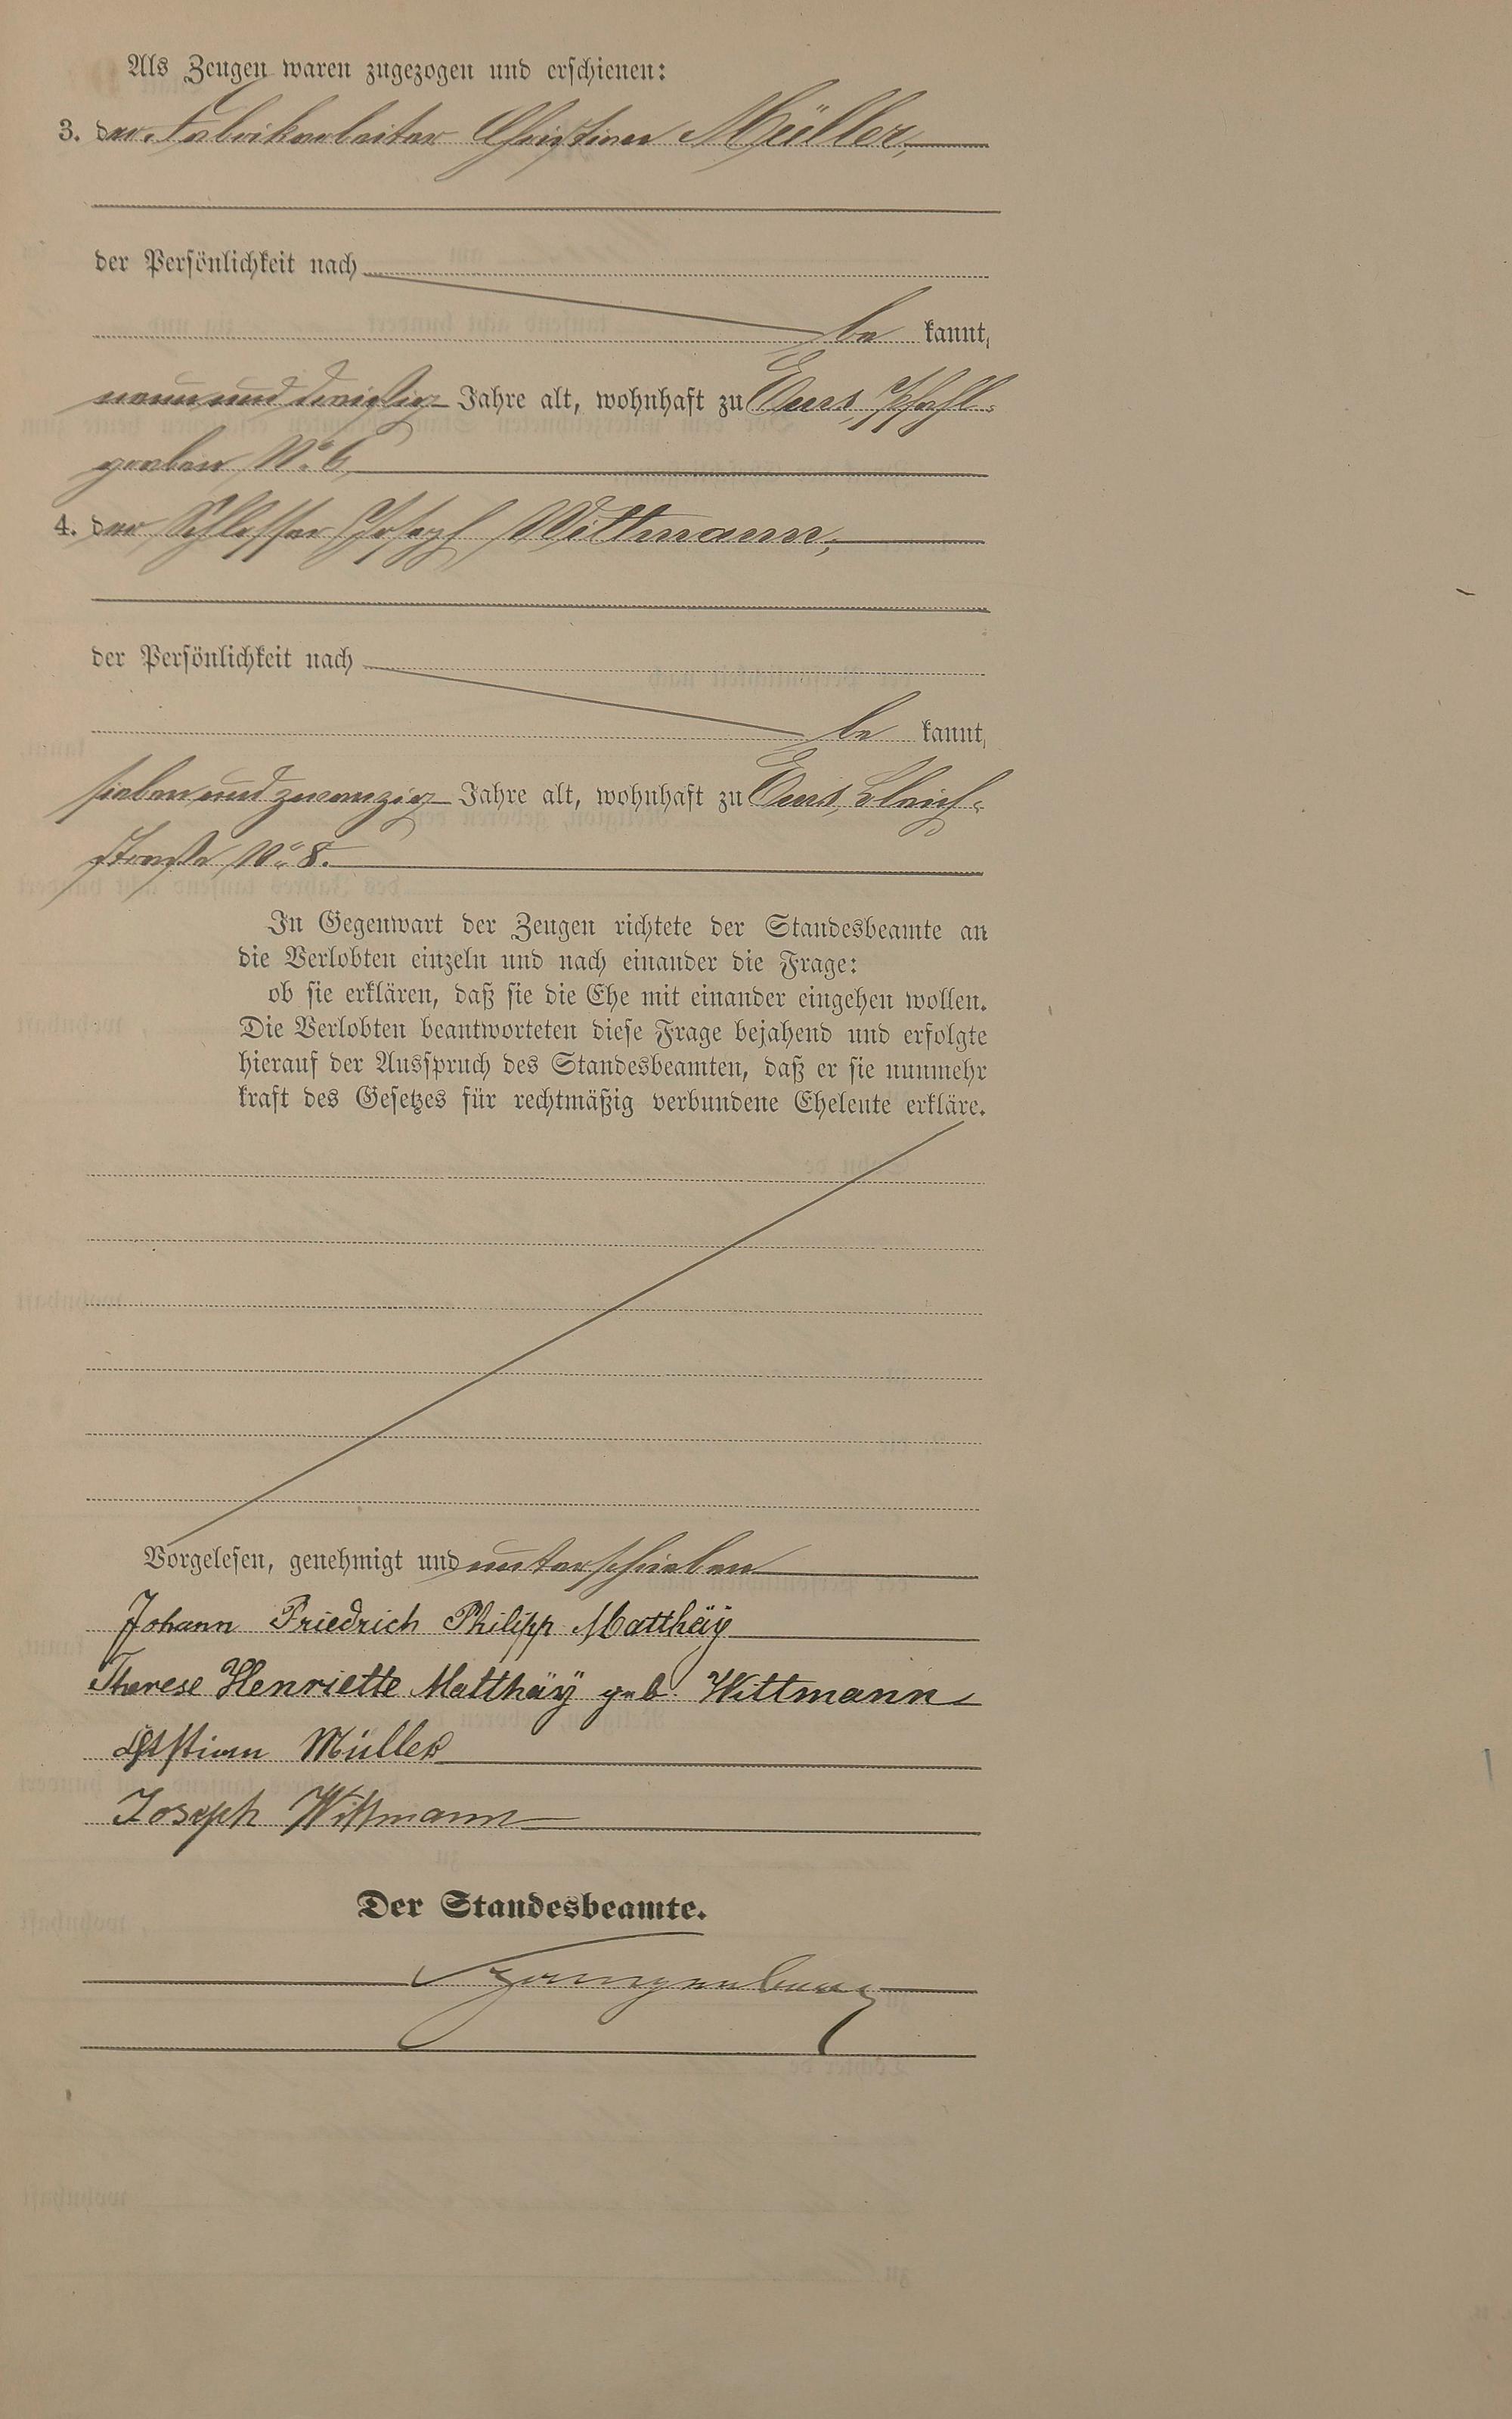 Als Zeugen waren zugezogen und erschienen:
3. der Fabrikarbeiter Christian Müller,
der Persönlichkeit nach
be kannt,
neun und dreißig Jahre alt, wohnhaft zu Ems, Pfahl-
graben No. 6,
4. der Schlosser Joseph Wittmann,
der Persönlichkeit nach
be kannt,
sieben und zwanzig Jahre alt, wohnhaft zu Ems, Bleich-
straße No. 8.
In Gegenwart der Zeugen richtete der Standesbeamte an
die Verlobten einzeln und nach einander die Frage:
ob sie erklären, daß sie die Ehe mit einander eingehen wollen.
Die Verlobten beantworteten diese Frage bejahend und erfolgte
hierauf der Ausspruch des Standesbeamten, daß er sie nunmehr
kraft des Gesetzes für rechtmäßig verbundene Eheleute erkläre.
Vorgelesen, genehmigt und unterschrieben
Johann Friedrich Philipp Matthäy
Therese Henriette Matthäy geb. Wittmann
Müller
Joseph Wittmann
Der Standesbeamte.